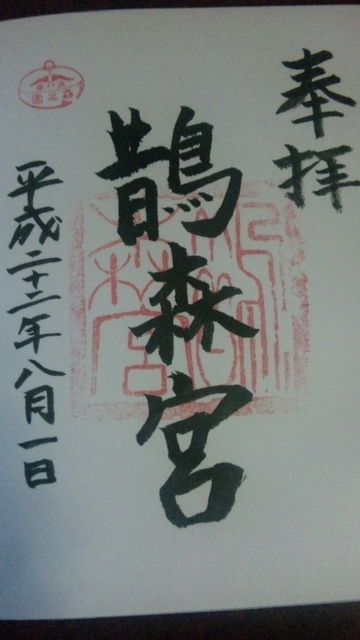 奉拝
鵲森宮
平成二十二年八月一日